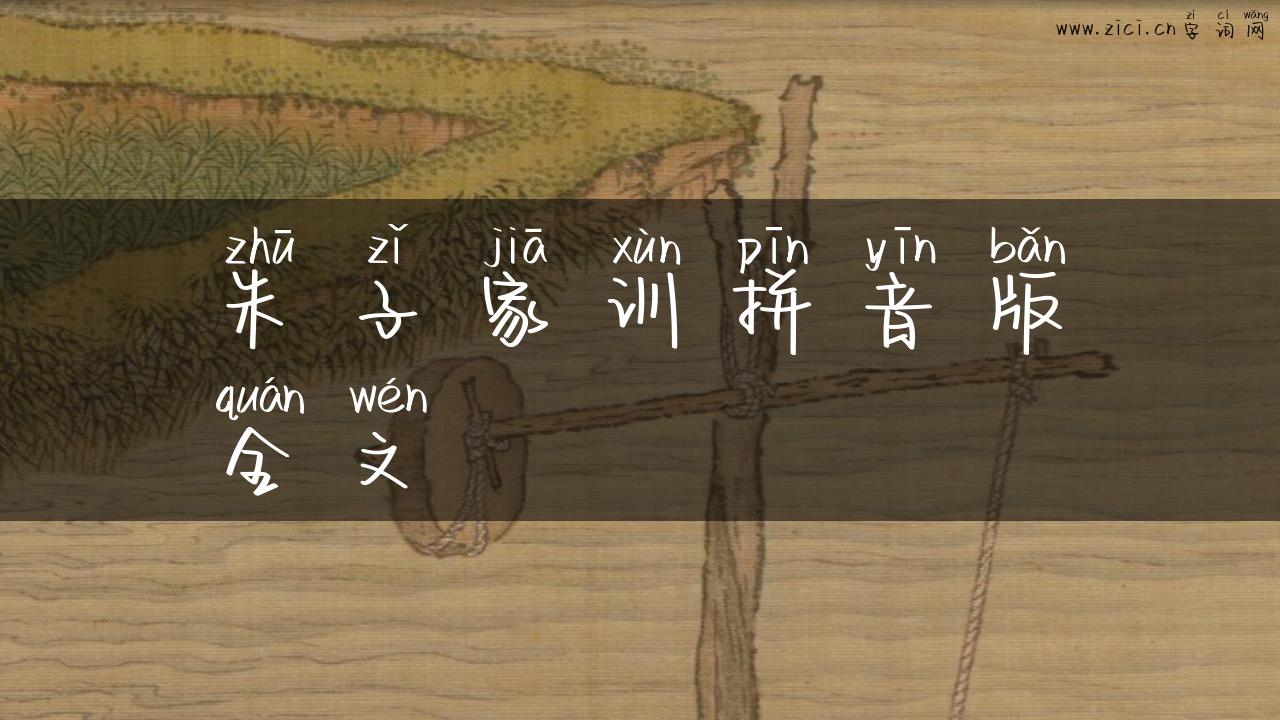 zì cí wǎng
www.zici.cn字词网
zhū zǐ jiā xùn pīn yīn bǎn
朱子家训拼音版
quán wén
全文